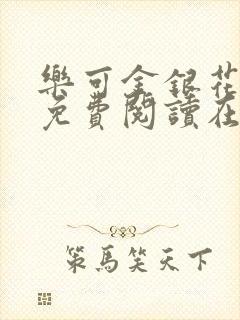 樂可金銀花
免費閱讀在
策馬笑天下